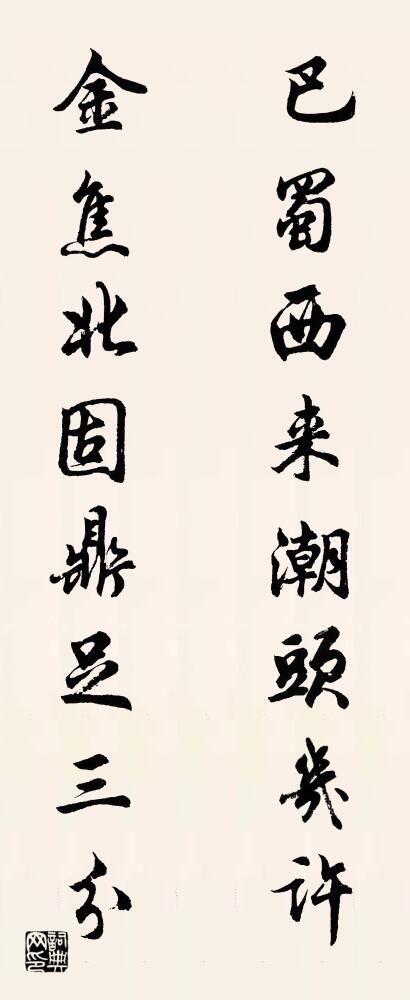 巴蜀西来潮頭幾許
金焦北固鼎足三分
詞典网印